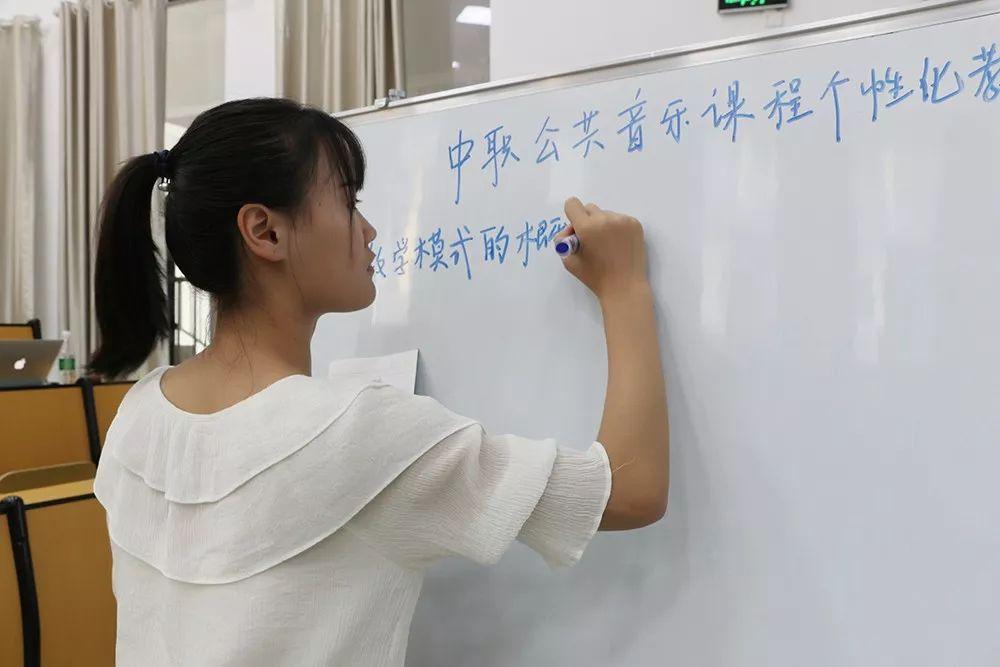 中职公共音乐课程个性化教
教学模式的概